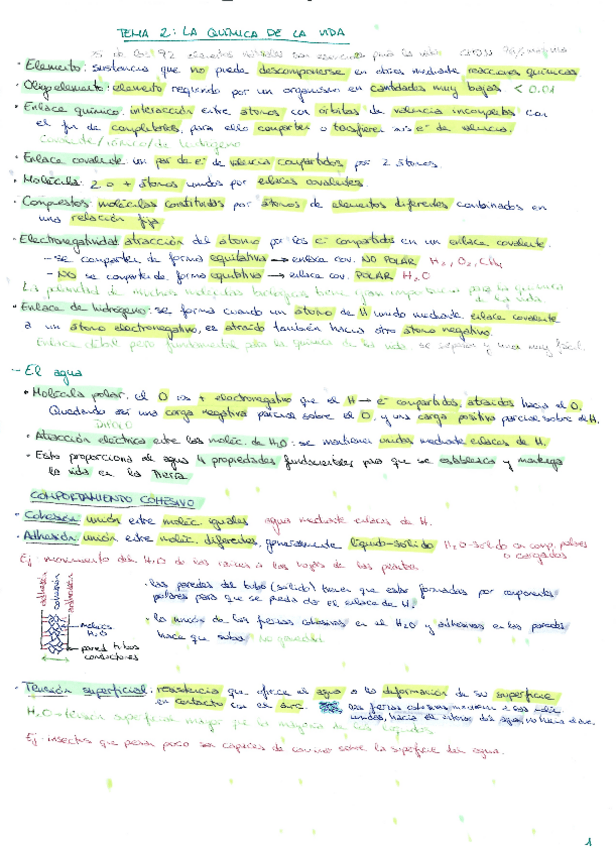 TEMA 2: LA QUÍMICA DE LA VIDA
de los 92 elementos naturales son esenciales para la vida
· Elemento: sustancia que no puede descomponerse en otras mediante reacciones químicas
· Oligoelemento: elemento requerido por un organismo en cantidades muy bajas < 0.01
· Enlace químico: interacción entre átomos con órbitas de valencia incompletas con
el fin de completarlos, para ello comparten o transfieren sus e⁻ de valencia.
Covalente/iónico/de hidrógeno
· Enlace covalente: un par de e⁻ de valencia compartidos por 2 átomos.
· Molécula: 2 o + átomos unidos por enlaces covalentes.
· Compuestos: moléculas constituidas por átomos de elementos diferentes combinados en
una relación fija
· Electronegatividad: atracción del átomo por los e⁻ compartidos en un enlace covalente.
- se comparten de forma equitativa → enlace cov. NO POLAR H₂, O₂, CH₄
- NO se comparten de forma equitativa → enlace cov. POLAR H₂O
La polaridad de muchas moléculas biológicas tiene gran importancia para la química
de la vida.
· Enlace de hidrógeno: se forma cuando un átomo de H unido mediante enlace covalente
a un átomo electronegativo, es atraído también hacia otro átomo negativo.
Enlace débil pero fundamental para la química de la vida se separan y unen muy fácil.
- El agua
· Molécula polar: el O es + electronegativo que el H → e⁻ compartidos, atraídos hacia el O.
Quedando así una carga negativa parcial sobre el O, y una carga positiva parcial sobre el H.
· Atracción eléctrica entre las moléc. de H₂O: se mantienen unidas mediante enlaces de H.
· Esto proporciona al agua 4 propiedades fundamentales para que se establezca y mantenga
la vida en la Tierra
COMPORTAMIENTO COHESIVO
· Cohesión: unión entre moléc. iguales agua mediante enlaces de H.
· Adhesión: unión entre moléc. diferentes, generalmente líquido-sólido H₂O-sólido con comp. polares
o cargados
Ej: movimiento del H₂O de las raíces a las hojas de las plantas.
· Las paredes del tubo (sólido) tienen que estar formadas por componentes
polares para que se pueda dar el enlace de H.
adhesión
cohesión
molécs
H₂O
pared tubos
conductores
· La unión de las fuerzas cohesivas en el H₂O y adhesivas en las paredes
hace que suba. No gravedad
· Tensión superficial: resistencia que ofrece el agua a la deformación de su superficie
en contacto con el aire. las fuerzas cohesivas mantienen a las moléc.
unidas, hacia el interior del agua, no hacia el aire.
H₂O → tensión superficial mayor que la mayoría de los líquidos
Ej: insectos que pesan poco son capaces de caminar sobre la superficie del agua.
1